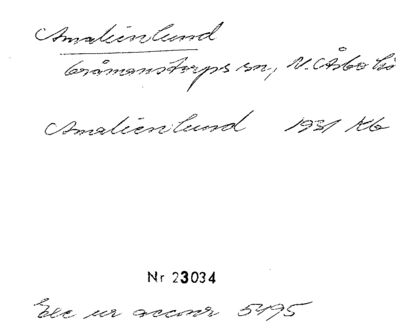 Amalienlund
Gråmanstorps sn, N. Åsbo hd
Amalienlund 1931 Kb
Nr 23034
Exc ur accnr 5495